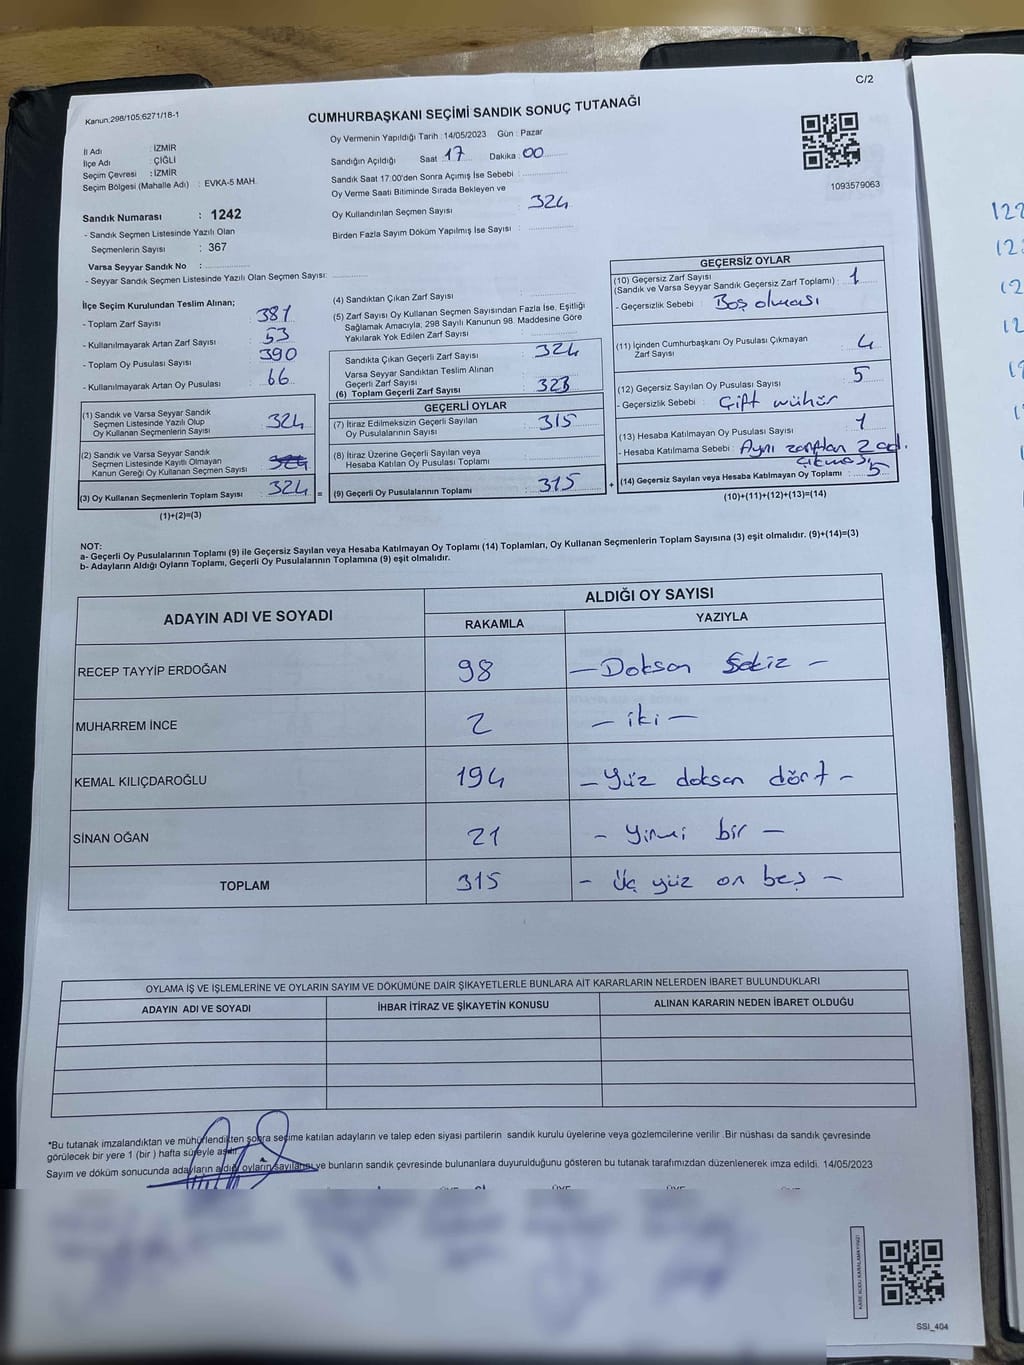 C/2
Kanun:298/105;6271/18-1
CUMHURBAŞKANI SEÇİMİ SANDIK SONUÇ TUTANAĞI
İl Adı : İZMİR
İlçe Adı : ÇİĞLİ
Seçim Çevresi : İZMİR
Seçim Bölgesi (Mahalle Adı) : EVKA-5 MAH.
Sandık Numarası : 1242
- Sandık Seçmen Listesinde Yazılı Olan
Seçmenlerin Sayısı : 367
Varsa Seyyar Sandık No :
- Seyyar Sandık Seçmen Listesinde Yazılı Olan Seçmen Sayısı:
Oy Vermenin Yapıldığı Tarih : 14/05/2023 Gün : Pazar
Sandığın Açıldığı Saat 17 Dakika 00
Sandık Saat 17:00'den Sonra Açımış İse Sebebi :
Oy Verme Saati Bitiminde Sırada Bekleyen ve
Oy Kullandırılan Seçmen Sayısı : 324
Birden Fazla Sayım Döküm Yapılmış İse Sayısı :
1093579063
İlçe Seçim Kurulundan Teslim Alınan;
- Toplam Zarf Sayısı : 381
- Kullanılmayarak Artan Zarf Sayısı : 53
- Toplam Oy Pusulası Sayısı : 390
- Kullanılmayarak Artan Oy Pusulası : 66
(1) Sandık ve Varsa Seyyar Sandık
Seçmen Listesinde Yazılı Olup
Oy Kullanan Seçmenlerin Sayısı : 324
(2) Sandık ve Varsa Seyyar Sandık
Seçmen Listesinde Kayıtlı Olmayan
Kanun Gereği Oy Kullanan Seçmen Sayısı : 324
(3) Oy Kullanan Seçmenlerin Toplam Sayısı : 324 =
(1)+(2)=(3)
(4) Sandıktan Çıkan Zarf Sayısı :
(5) Zarf Sayısı Oy Kullanan Seçmen Sayısından Fazla İse, Eşitliği
Sağlamak Amacıyla, 298 Sayılı Kanunun 98. Maddesine Göre
Yakılarak Yok Edilen Zarf Sayısı :
Sandıkta Çıkan Geçerli Zarf Sayısı : 324
Varsa Seyyar Sandıktan Teslim Alınan
Geçerli Zarf Sayısı :
(6) Toplam Geçerli Zarf Sayısı : 323
GEÇERLİ OYLAR
(7) İtiraz Edilmeksizin Geçerli Sayılan
Oy Pusulalarının Sayısı : 315
(8) İtiraz Üzerine Geçerli Sayılan veya
Hesaba Katılan Oy Pusulası Toplamı :
(9) Geçerli Oy Pusulalarının Toplamı : 315 +
GEÇERSİZ OYLAR
(10) Geçersiz Zarf Sayısı
(Sandık ve Varsa Seyyar Sandık Geçersiz Zarf Toplamı) : 1
- Geçersizlik Sebebi : Boş olması
(11) İçinden Cumhurbaşkanı Oy Pusulası Çıkmayan
Zarf Sayısı : 4
(12) Geçersiz Sayılan Oy Pusulası Sayısı : 5
- Geçersizlik Sebebi : Çift mühür
(13) Hesaba Katılmayan Oy Pusulası Sayısı : 1
- Hesaba Katılmama Sebebi : Aynı zarftan 2 ad.
çıkması
(14) Geçersiz Sayılan veya Hesaba Katılmayan Oy Toplamı : 5
(10)+(11)+(12)+(13)=(14)
NOT:
a- Geçerli Oy Pusulalarının Toplamı (9) ile Geçersiz Sayılan veya Hesaba Katılmayan Oy Toplamı (14) Toplamları, Oy Kullanan Seçmenlerin Toplam Sayısına (3) eşit olmalıdır. (9)+(14)=(3)
b- Adayların Aldığı Oyların Toplamı, Geçerli Oy Pusulalarının Toplamına (9) eşit olmalıdır.
ADAYIN ADI VE SOYADI
ALDIĞI OY SAYISI
RAKAMLA YAZIYLA
RECEP TAYYİP ERDOĞAN 98 - Doksan Sekiz -
MUHARREM İNCE 2 - iki -
KEMAL KILIÇDAROĞLU 194 - Yüz doksan dört -
SİNAN OĞAN 21 - Yirmi bir -
TOPLAM 315 - Üç yüz on beş -
OYLAMA İŞ VE İŞLEMLERİNE VE OYLARIN SAYIM VE DÖKÜMÜNE DAİR ŞİKAYETLERLE BUNLARA AİT KARARLARIN NELERDEN İBARET BULUNDUKLARI
ADAYIN ADI VE SOYADI İHBAR İTİRAZ VE ŞİKAYETİN KONUSU ALINAN KARARIN NEDEN İBARET OLDUĞU
*Bu tutanak imzalandıktan ve mühürlendikten sonra seçime katılan adayların ve talep eden siyasi partilerin sandık kurulu üyelerine veya gözlemcilerine verilir .Bir nüshası da sandık çevresinde
görülecek bir yere 1 (bir ) hafta süreyle asılır.
Sayım ve döküm sonucunda adayların aldığı oyların sayılarını ve bunların sandık çevresinde bulunanlara duyurulduğunu gösteren bu tutanak tarafımızdan düzenlenerek imza edildi. 14/05/2023
KARE KODU KARALAMAYINIZ!
SSI_404